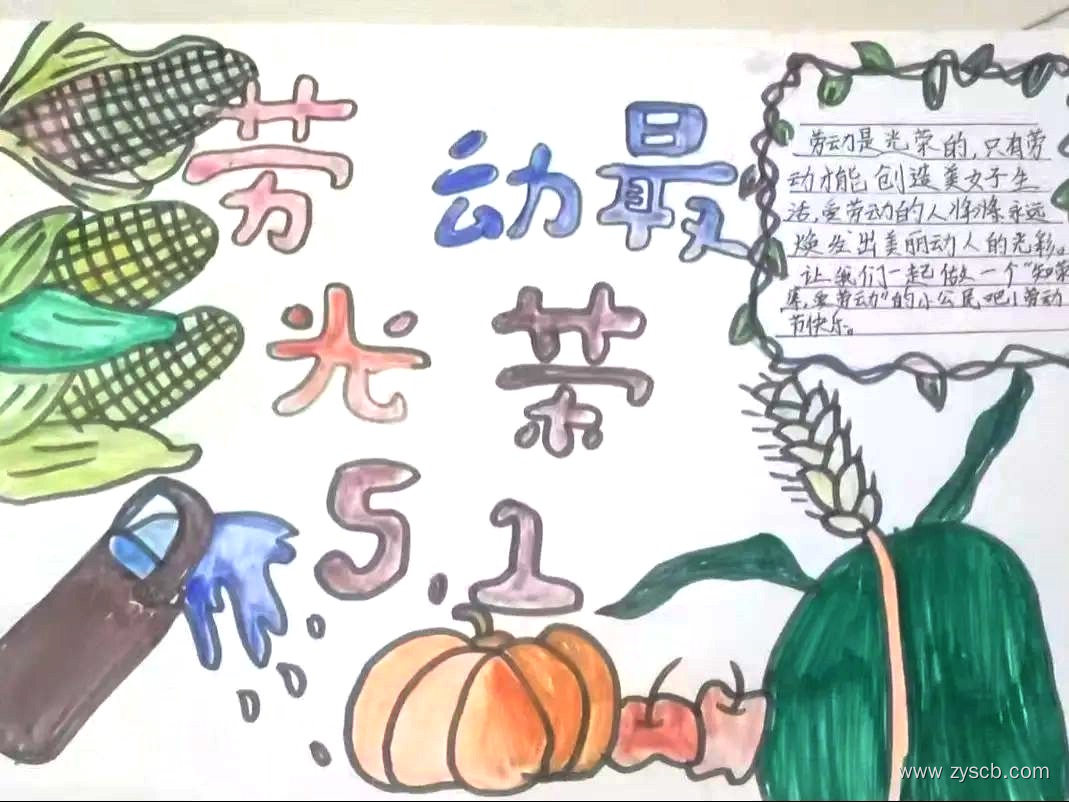 劳动最
光荣
5.1
劳动是光荣的,只有劳
动才能创造美好生
活,爱劳动的人将永远
焕发出美丽动人的光彩。
让我们一起做一个"知荣
辱,爱劳动"的小公民吧!劳动
节快乐。
www.zyscb.com